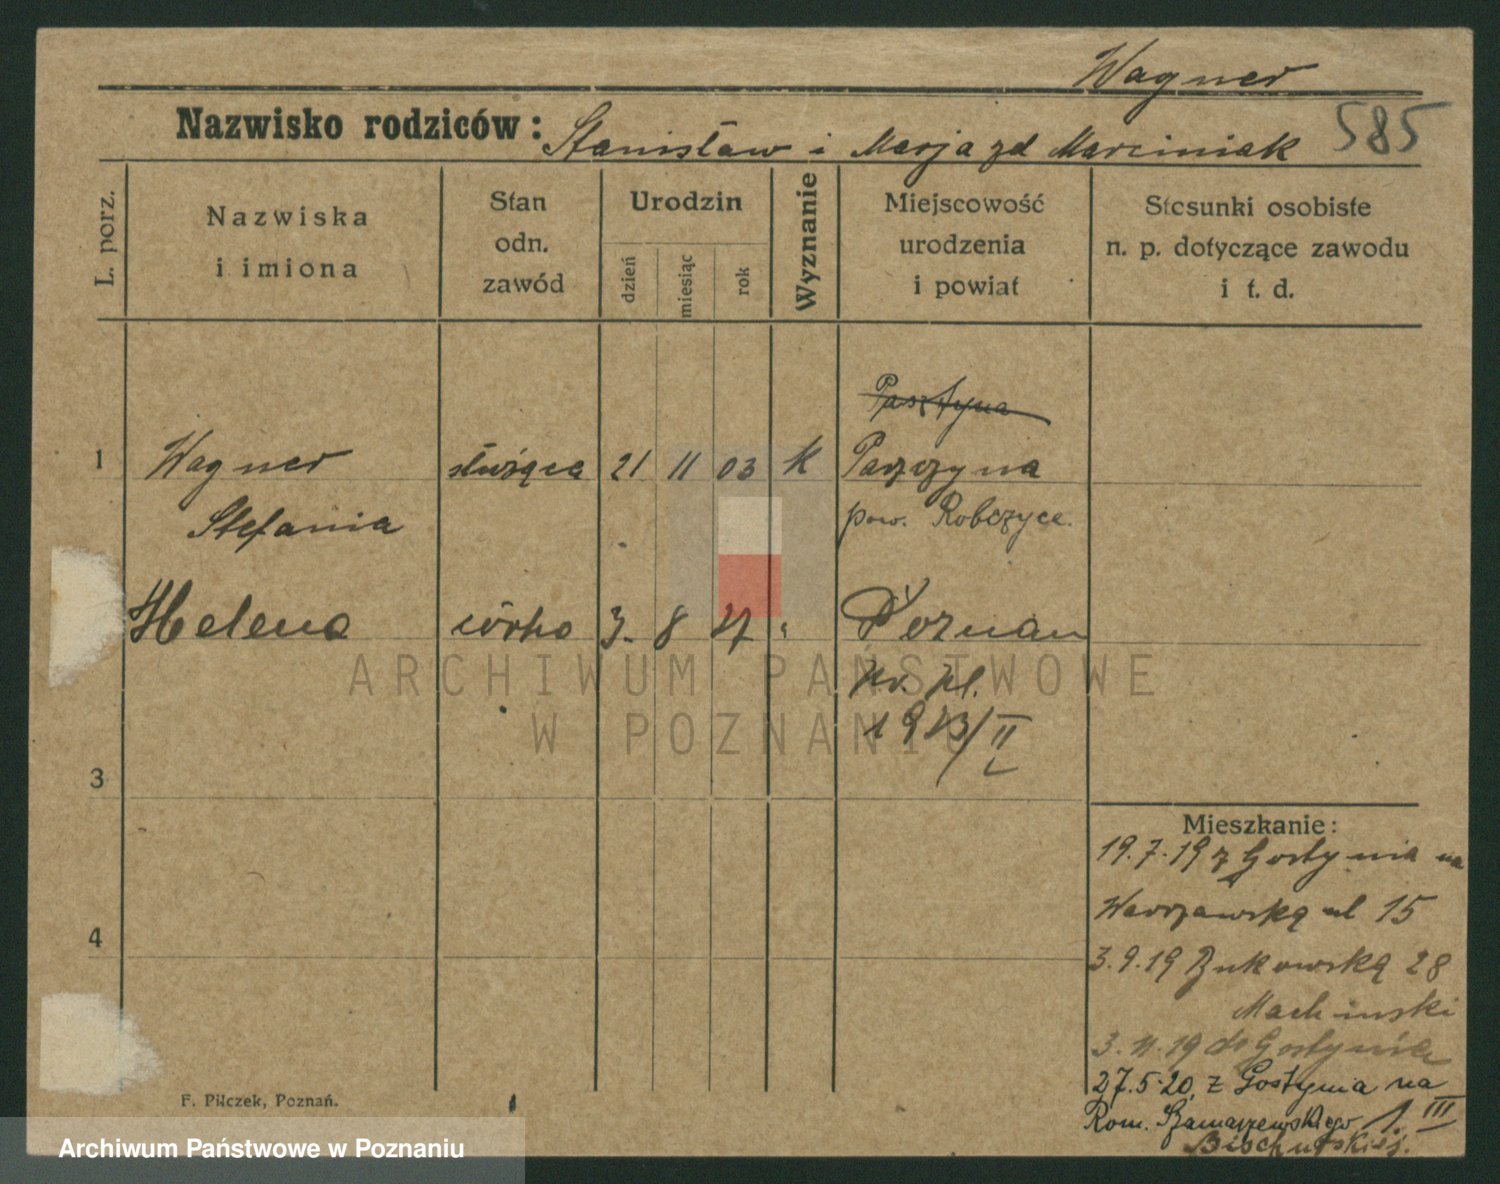 Wagner
Nazwisko rodziców: Stanisław i Marja zd Marciniak 585
L. porz.
Nazwiska i imiona
Stan odn. zawód
Urodzin
dzień
miesiąc
rok
Wyznanie
Miejscowość urodzenia i powiat
Stosunki osobiste n. p. dotyczące zawodu i t. d.
Pasztyna
1 Wagner służąca 21 11 03 K Parzyna
Stefania pow. Robczyce.
Helena córka 3. 8 Poznań
1913/II
3
4
Mieszkanie:
19.7.19 z Gostynia na
Warszawską ul 15
3.9.19 Bukowską 28
Machinski
3.11.19 do Gostynia
27.5.20, z Gostynia na
Rom. Szamarzewskiego 1 III
F. Pilczek, Poznań.
ARCHIWUM PAŃSTWOWE
W POZNANIU
Archiwum Państwowe w Poznaniu